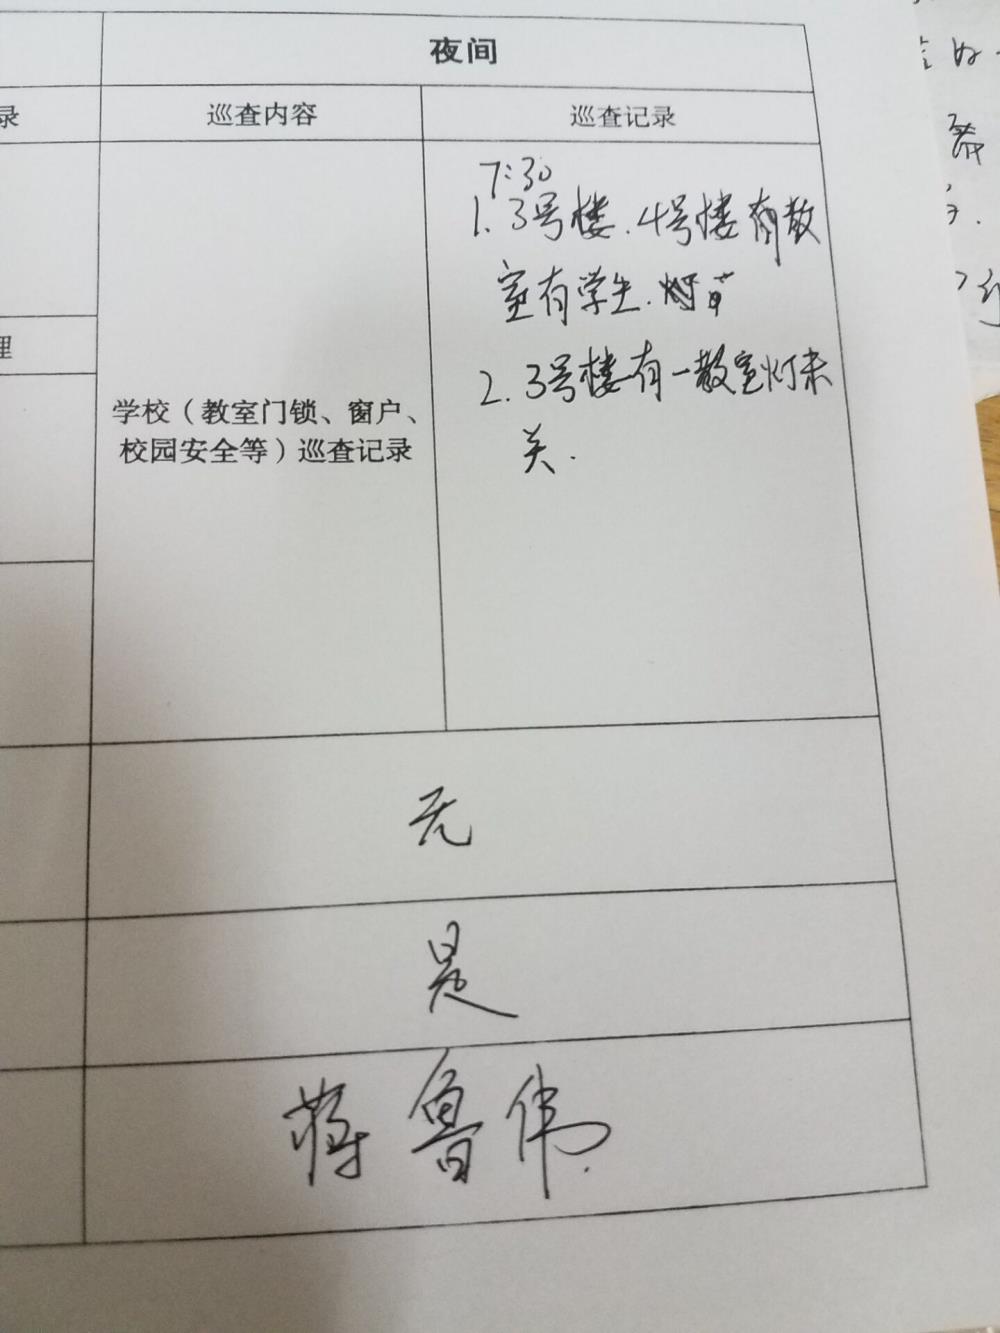 夜间
录
巡查内容
巡查记录
理
学校（教室门锁、窗户、
校园安全等）巡查记录
7:30
1. 3号楼.4号楼有教
室有学生.
2. 3号楼有一教室灯未
关.
无
是
蒋鲁伟